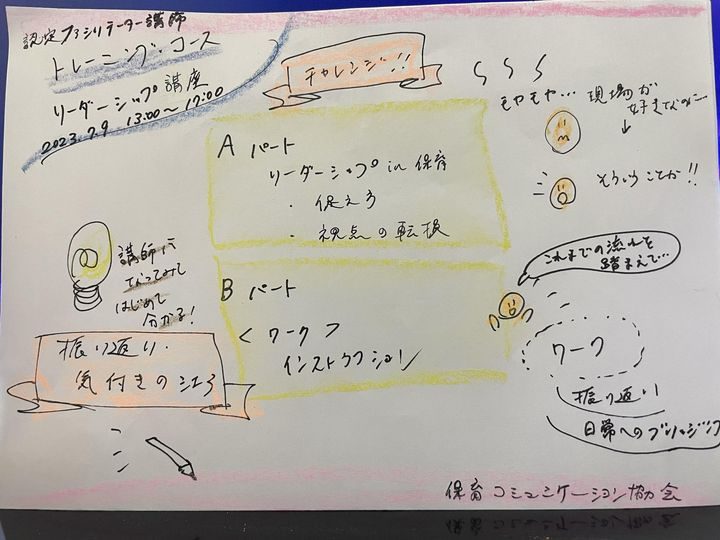 認定ファシリテーター講師
トレーニング・コース
リーダーシップ講座
2023.7.9 13:00〜17:00
チャレンジ!!
モヤモヤ…
現場が
好きなのに…
↓
そういうことか!!
A パート
リーダーシップ in 保育
・捉える
・視点の転換
講師に
なってみて
はじめて
分かる!
B パート
< ワーク >
インストラクション
これまでの流れを
踏まえて…
ワーク
振り返り
日常へのブリッジング
振り返り・
気付きのシェア
保育コミュニケーション協会